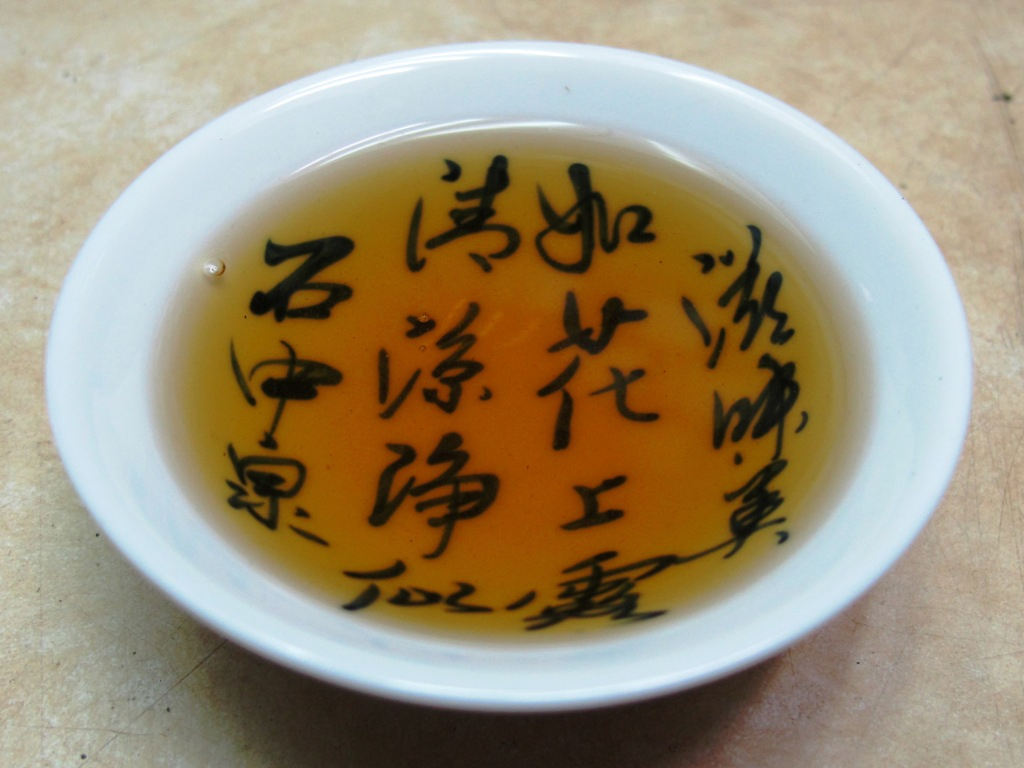 滋味美
如花上露
清涼淨似
石中泉